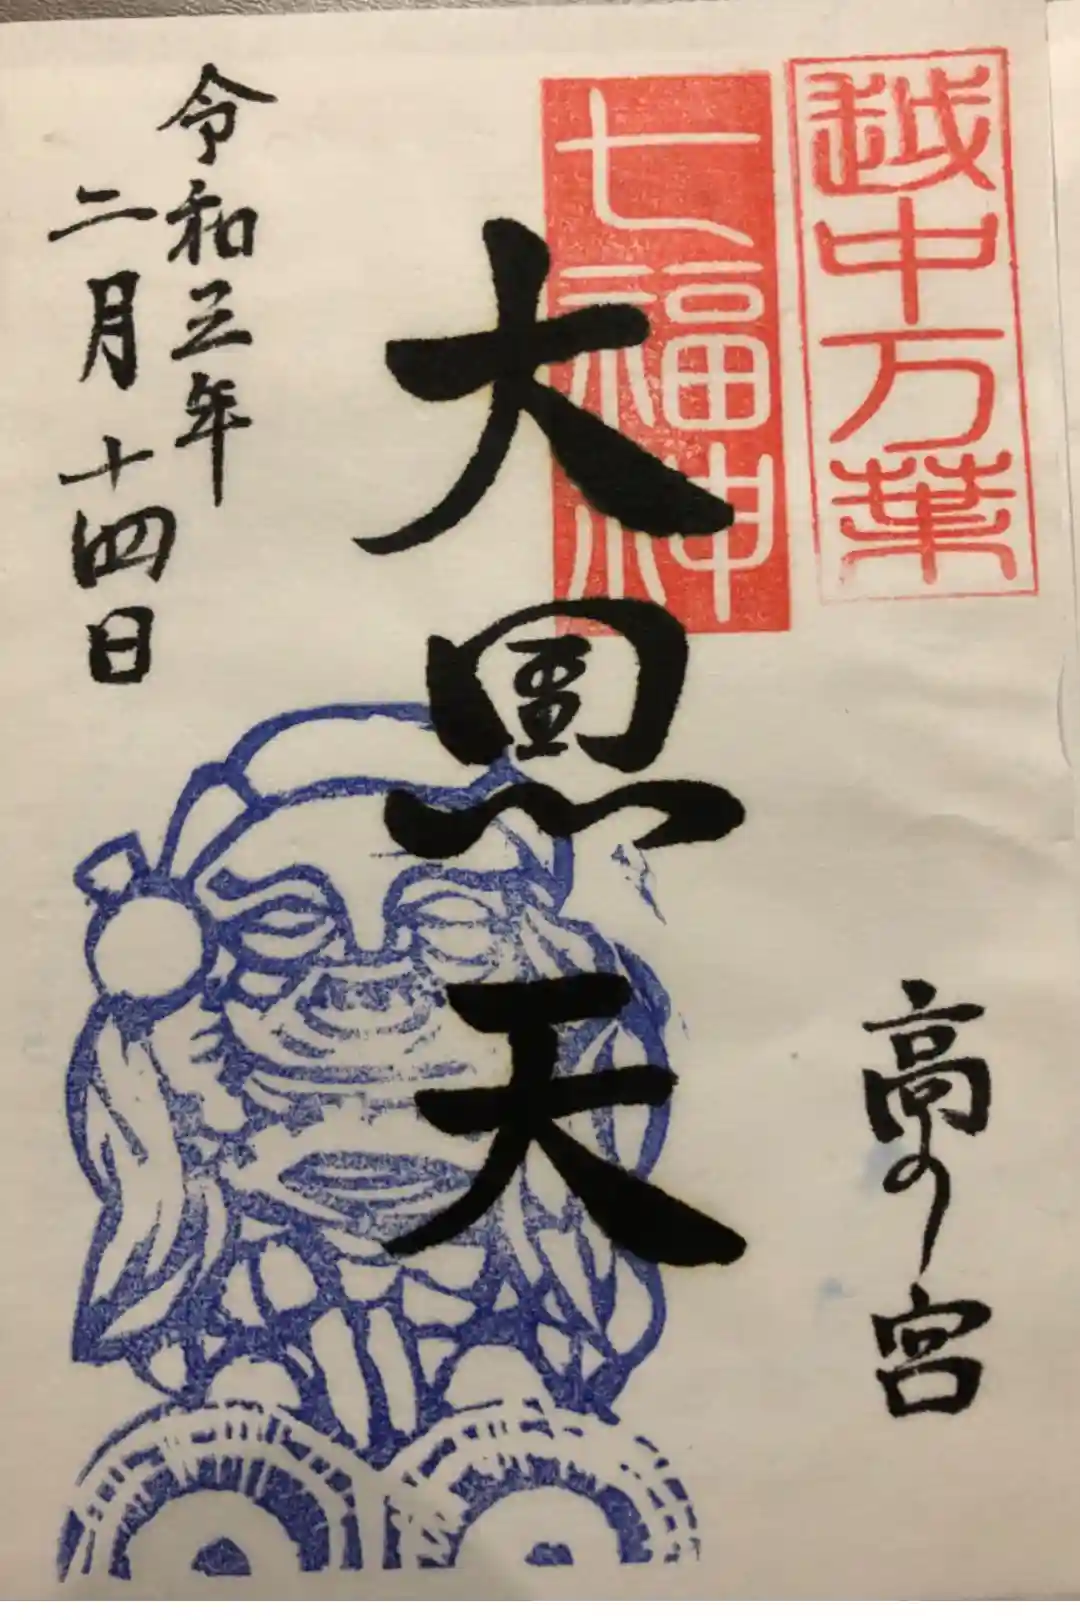 越中万葉
七福神
高の宮
大黒天
令和三年
二月十四日